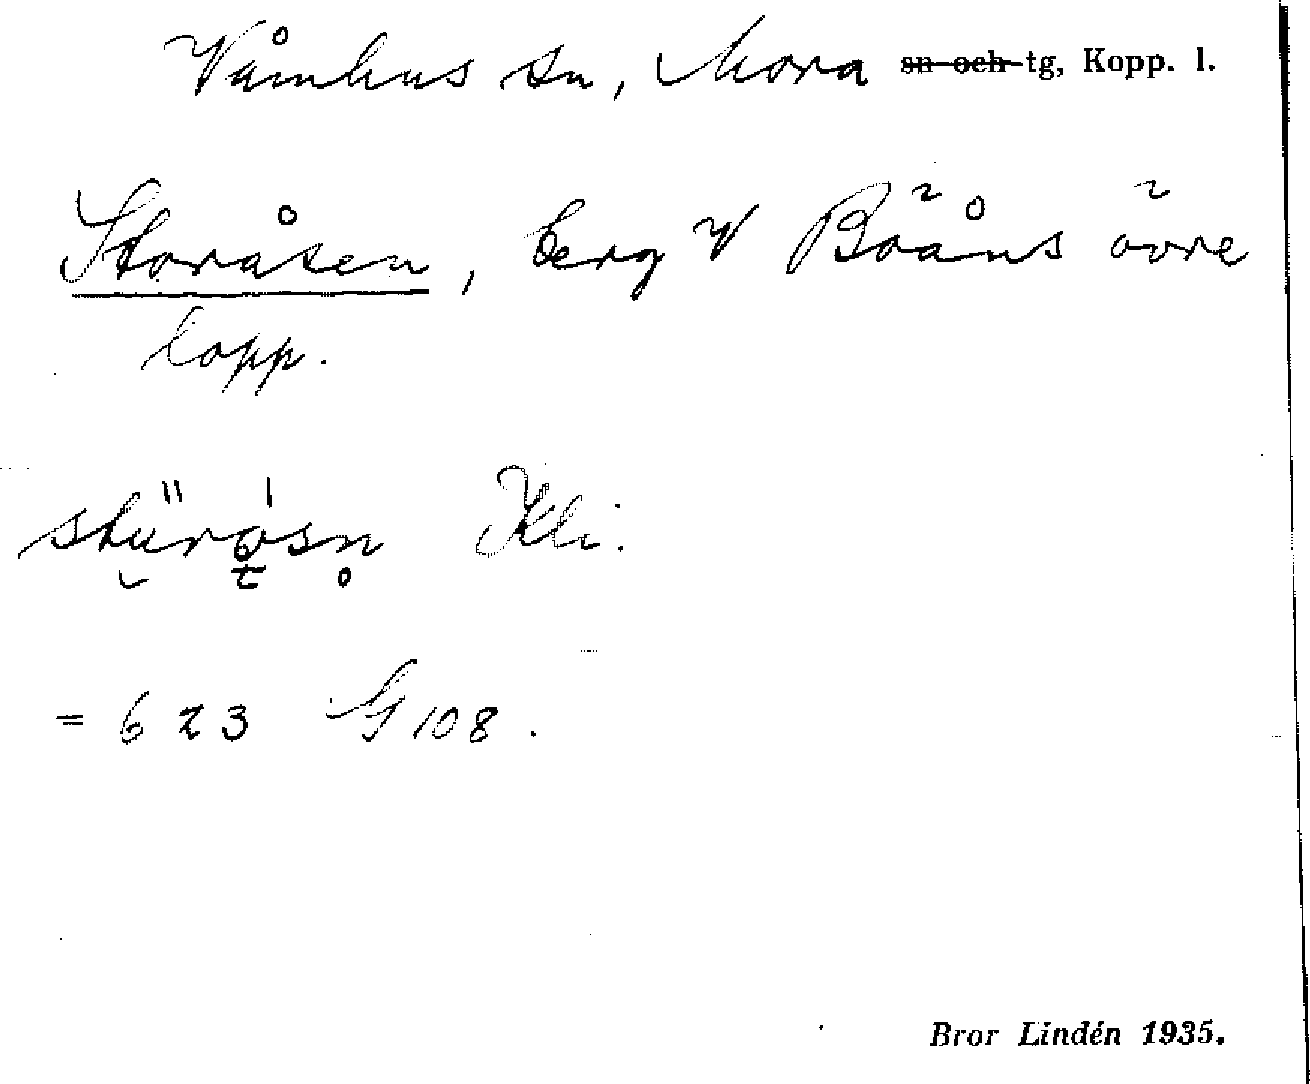 Våmhus sn, Mora sn och tg, Kopp. l.
Storåsen, berg V Böåns övre
lopp.
stürøsn Kli.
= 623 G 108.
Bror Lindén 1935.